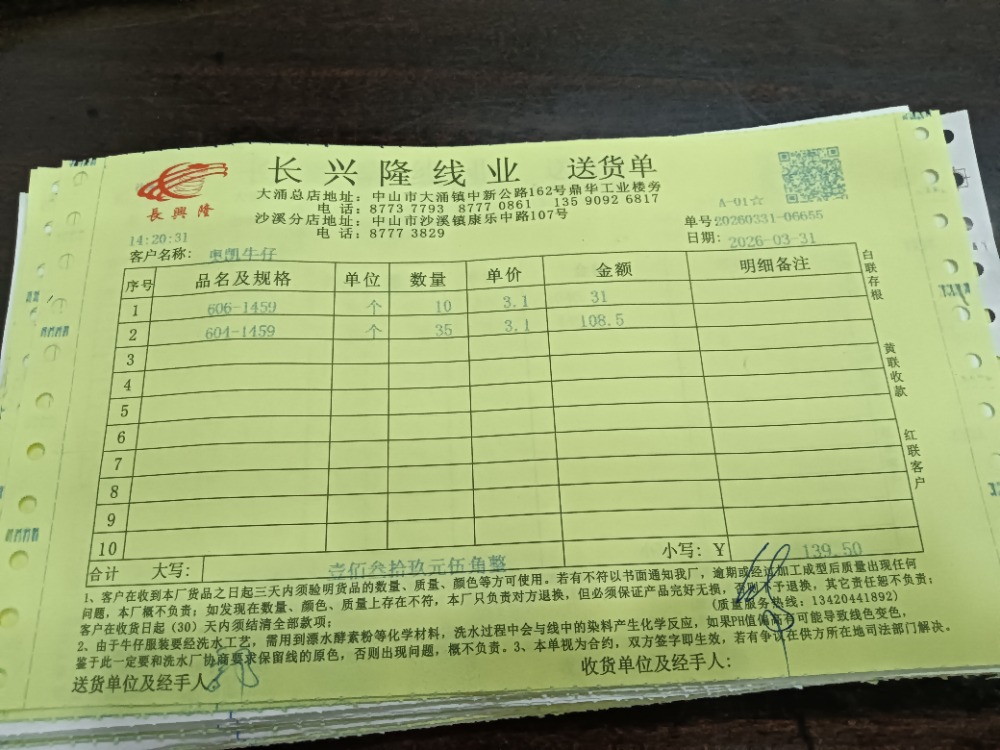 长兴隆线业 送货单
長興隆
大涌总店地址：中山市大涌镇中新公路162号鼎华工业楼旁
电话：8773 7793 8777 0861 135 9092 6817
沙溪分店地址：中山市沙溪镇康乐中路107号
电话：8777 3829
A-01☆
单号:20260331-06655
日期：2026-03-31
14:20:31
客户名称：奥凯牛仔
序号 品名及规格 单位 数量 单价 金额 明细备注
1 606-1459 个 10 3.1 31
2 604-1459 个 35 3.1 108.5
3
4
5
6
7
8
9
10
合计 大写：壹佰叁拾玖元伍角整 小写：Y 139.50
白联存根
黄联收款
红联客户
1、客户在收到本厂货品之日起三天内须验明货品的数量、质量、颜色等方可使用。若有不符以书面通知我厂，逾期或经过加工成型后质量出现任何
问题，本厂概不负责；如发现在数量、颜色、质量上存在不符，本厂只负责对方退换，但必须保证产品完好无损，否则不予退换，其它责任恕不负责；
客户在收货日起（30）天内须结清全部款项； (质量服务热线：13420441892)
2、由于牛仔服装要经洗水工艺，需用到漂水酵素粉等化学材料，洗水过程中会与线中的染料产生化学反应，如果PH值偏高有可能导致线色变色，
鉴于此一定要和洗水厂协商要求保留线的原色，否则出现问题，概不负责。3、本单视为合约，双方签字即生效，若有争议在供方所在地司法部门解决。
送货单位及经手人：
收货单位及经手人：